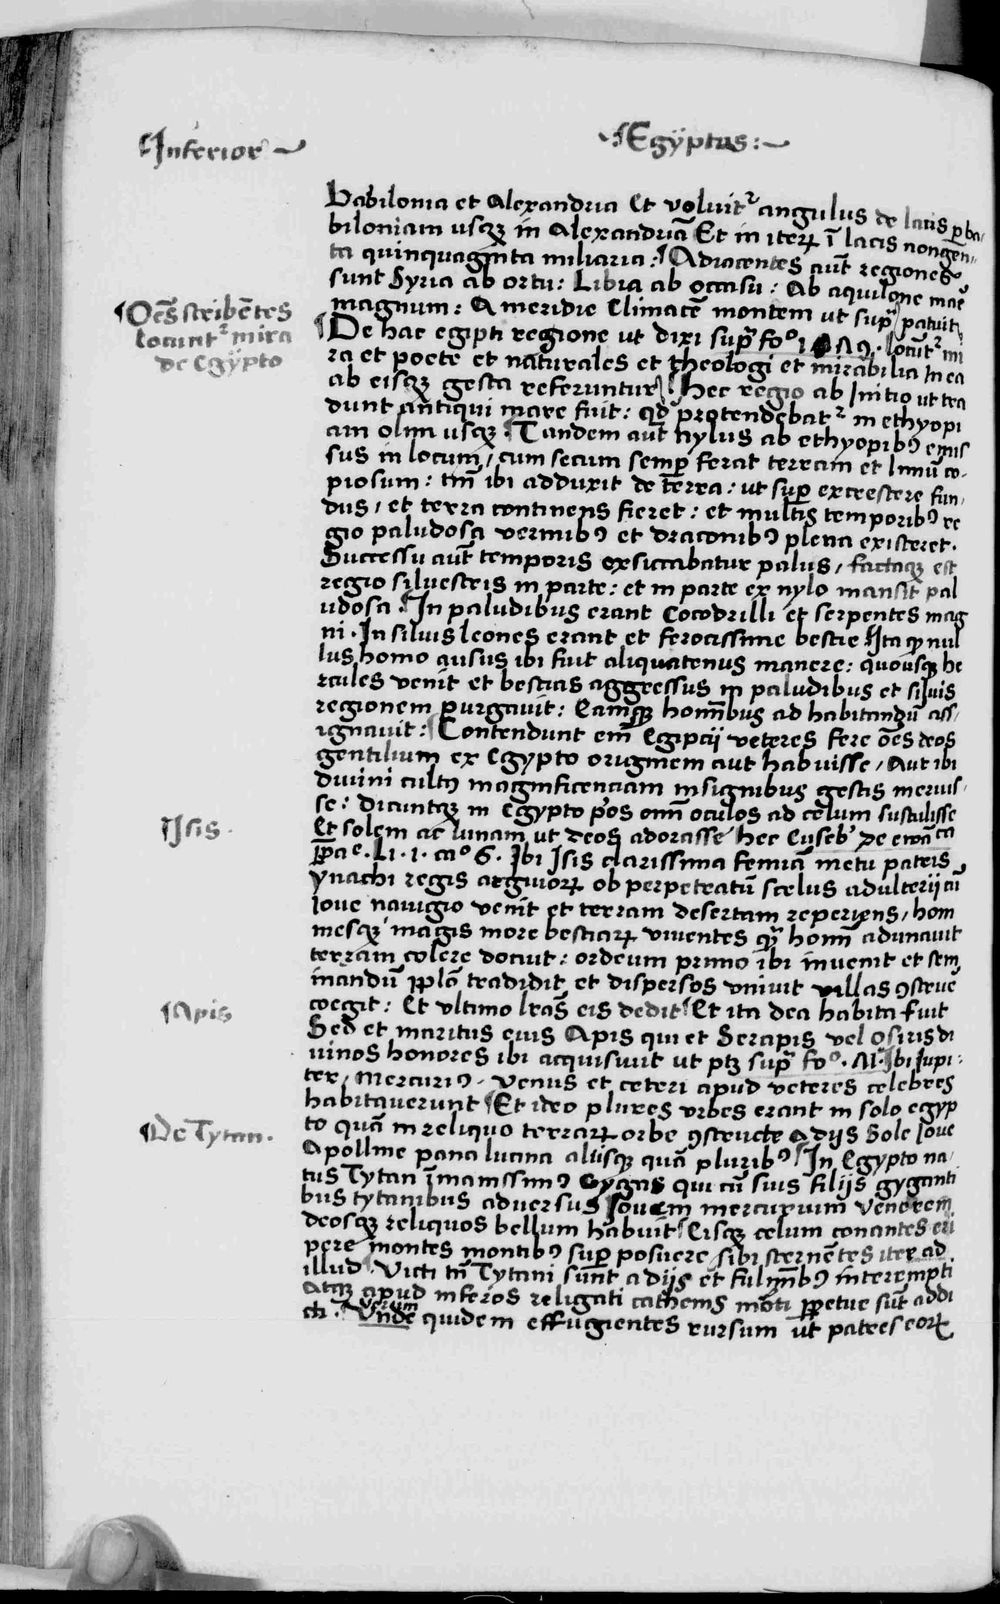 ¶Inferior
¶Egÿptus:
Babilonia et Alexandria Et voluitr angulus de lacis p ba
biloniam usqꝫ in Alexandriā Et in iterꝝ ī lacis nongen
ta quinquaginta miliaria: ¶Adiacentes aūt regiones
sunt Syria ab ortu: Libia ab occasu: Ab aquilone maē
magnum: A meridie Climacē montem ut sup̄ patuit
¶De hac egipti regione ut dixi sup̄ fo° locūtr mi
ra et poete et naturales et theologi et mirabilia In ea
ab eisqꝫ gesta referuntur ¶Hec regio ab Initio ut tra
dunt antiqui mare fuit: qd protendebatr in ethyopi
am olim usqꝫ ¶Tandem aut nylus ab ethyopibꝰ emis
sus in locum, cum secum semp ferat terram et limū co-
piosum: tm̄ ibi adduxit de t̄erra: ut sup excrescere fun,
dus, et terra continens fieret: et multis temporibꝰ re
gio paludosa vermibꝰ et draconibꝰ plena existeret.
Successu aūt temporis exsiccabatur palus, factaqꝫ est
regio silvestris in parte: et in parte ex nylo mansit pal
udosa ¶In paludibus erant Cocodrilli et serpentes mag
ni. In silvis leones erant et ferocissime bestie Ita qꝫ nul
lus homo ausus ibi fuit aliquatenus manere: quousqꝫ he
rcules venit et bestias aggressus in paludibus et silvis
regionem purgavit: Eamqꝫ hominibus ad habitandū ass,
ignavit: ¶Contendunt em̄ Egiptij veteres fere ōēs deos
gentilium ex Egypto originem aut habuisse, Aut ibi
divini cultꝰ magnificenciam insignibus gestis meruis,
se: dicuntqꝫ in Egypto p̄os om̄ oculos ad celum sustulisse
Et solem ac lunam ut deos adorasse hec Euseb' de ewāca
p̄pae. Li. 1. cao 6. Ibi Isis clarissima femiā metu patris
ynachi regis argivorꝝ ob perpetratū scelus adulterij cū
Iove navigio venit et terram desertam reperiens, hom
inesqꝫ magis more bestiarꝝ viventes qꝫ homī adunavit
terram colere docuit: ordeum primo ibi invenit et sem
inandū pp̄lō tradidit et dispersos univit villas ꝯstrue
coegit: Et ultimo lrās eis dedit ¶Et ita dea habita fuit
Sed et maritus eius Apis qui et Serapis vel Osiris di
vinos honores ibi acquisivit ut ptꝫ sup̄ fo°. Ibi Jupi:
ter, Mercuriꝰ, Venus et ceteri apud veteres celebres
habitaverunt ¶Et ideo plures urbes erant in solo egyp
to quā in reliquo terrarꝝ orbe ꝯstructe A dijs Sole Iove
Apolline pana lucina alijsqꝫ quā pluribꝰ ¶In Egypto na,
tus Tytan īmanissimꝰ Gygas qui cū suis filijs gyganti
bus tytanibus adversus Iovem mercurium Venerem
deosqꝫ reliquos bellum habuit ¶Eisqꝫ celum conantes eri
pere montes montibꝰ sup posuere, sibi sternētes iter ad
illud ¶Victi tn̄ Tytani sūnt a dijs et fulminbꝰ interempti
Atqꝫ apud inferos religati cathenis mōti pp̄etue sūt addi
cti. Verum
¶Vnde quidem effugientes rursum ut patres eorꝝ
¶Oēs scribētes
locuntr mira
de Egÿpto
¶Isis.
¶Apis
¶De Tytan.